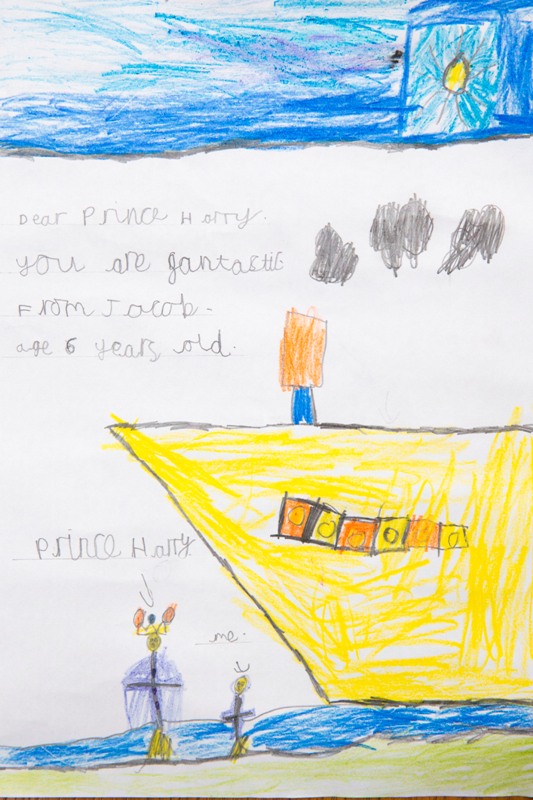 Dear Prince Harry.
you are fantastic
From Jacob.
age 6 years old.
Prince Harry
me.